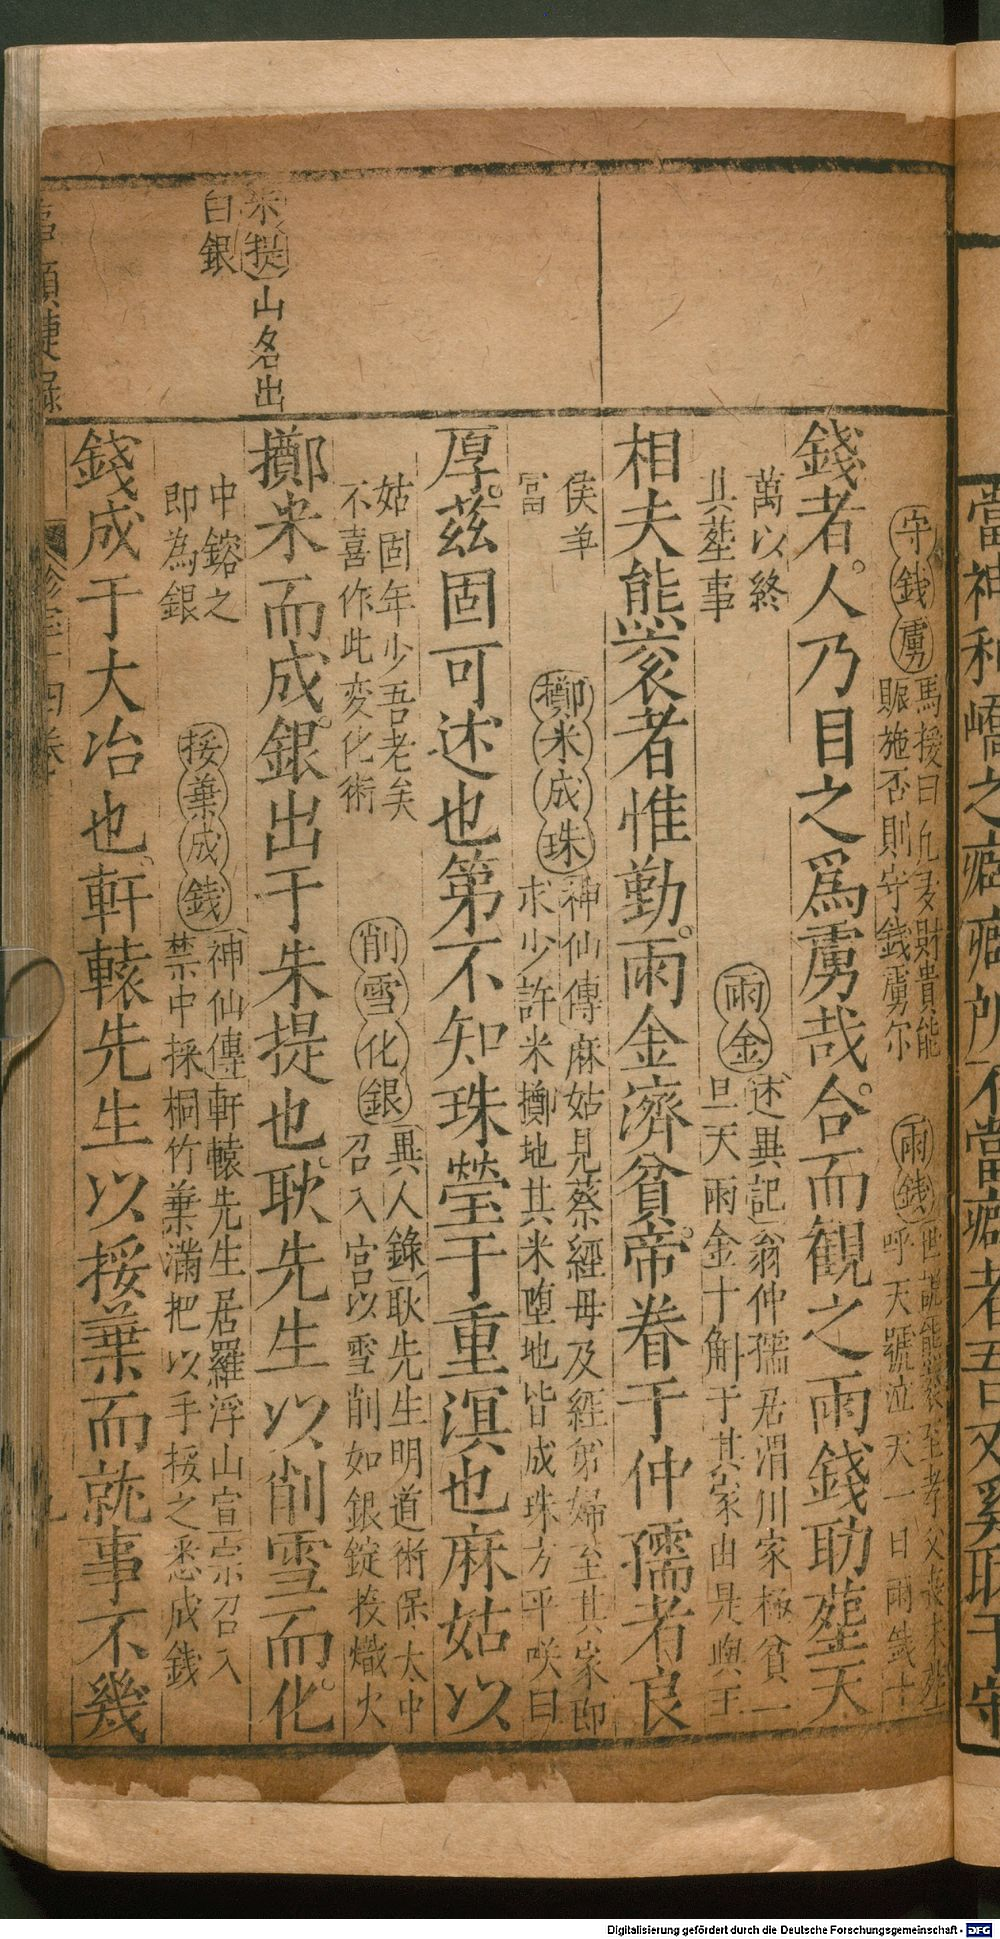 當神和嶠之癖癖所不當癖者吾又奚取于守
守錢虜 馬援曰凡多財貴能賑施否則守錢虜尔
雨錢 世說熊袞至孝父喪未塟呼天號泣天一日雨錢十
錢者。人乃目之爲虜哉。合而観之雨錢助塟天
萬以終其塟事
雨金 述異記翁仲孺居渭川家極貧一旦天雨金十斛于其家由是與王
相夫熊袞者惟勤。雨金濟貧。帝眷于仲孺者良
侯爭富
擲米成珠 神仙傳麻姑見蔡經母及經弟婦至其家即求少許米擲地其米墮地皆成珠方平咲曰
厚。茲固可述也第不知珠瑩于重溟也麻姑以
姑固年少吾老矣不喜作此变化術
削雪化銀 異人錄耿先生明道術保大中召入宮以雪削如銀錠投熾火
擲米而成。銀出于朱提也。耿先生以削雪而化。
中鎔之即為銀
挼葉成錢 神仙傳軒轅先生居羅浮山宣宗召入禁中採桐竹葉滿把以手挼之悉成錢
錢成于大冶也。軒轅先生以挼葉而就事不幾
朱提 山名出
白銀
事類捷錄
Digitalisierung gefördert durch die Deutsche Forschungsgemeinschaft - DFG